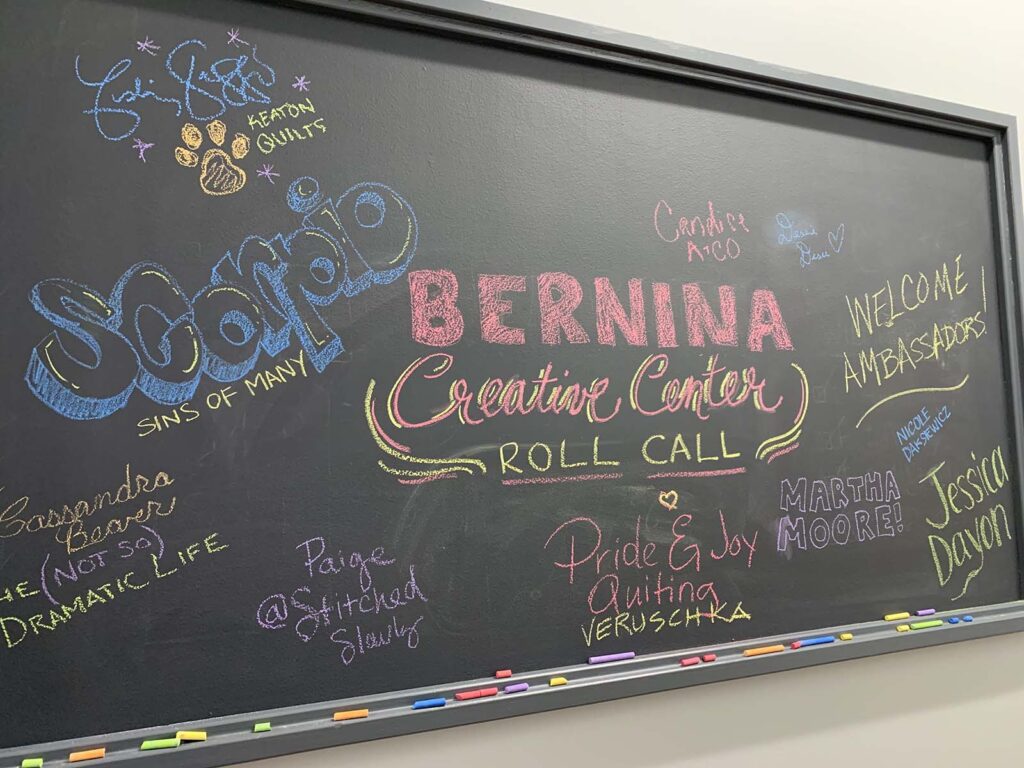 KEATON
QUILTS
Scorpio
SINS OF MANY
Candice
ATCO
BERNINA
Creative Center
ROLL CALL
WELCOME
AMBASSADORS!
NICOLE
DAKSIEWICZ
Cassandra
Beaver
HE (NOT SO)
DRAMATIC LIFE
Paige
@Stitched
Slowly
Pride & Joy
Quiting
VERUSCHKA
MARTHA
MOORE!
Jessica
Dayon